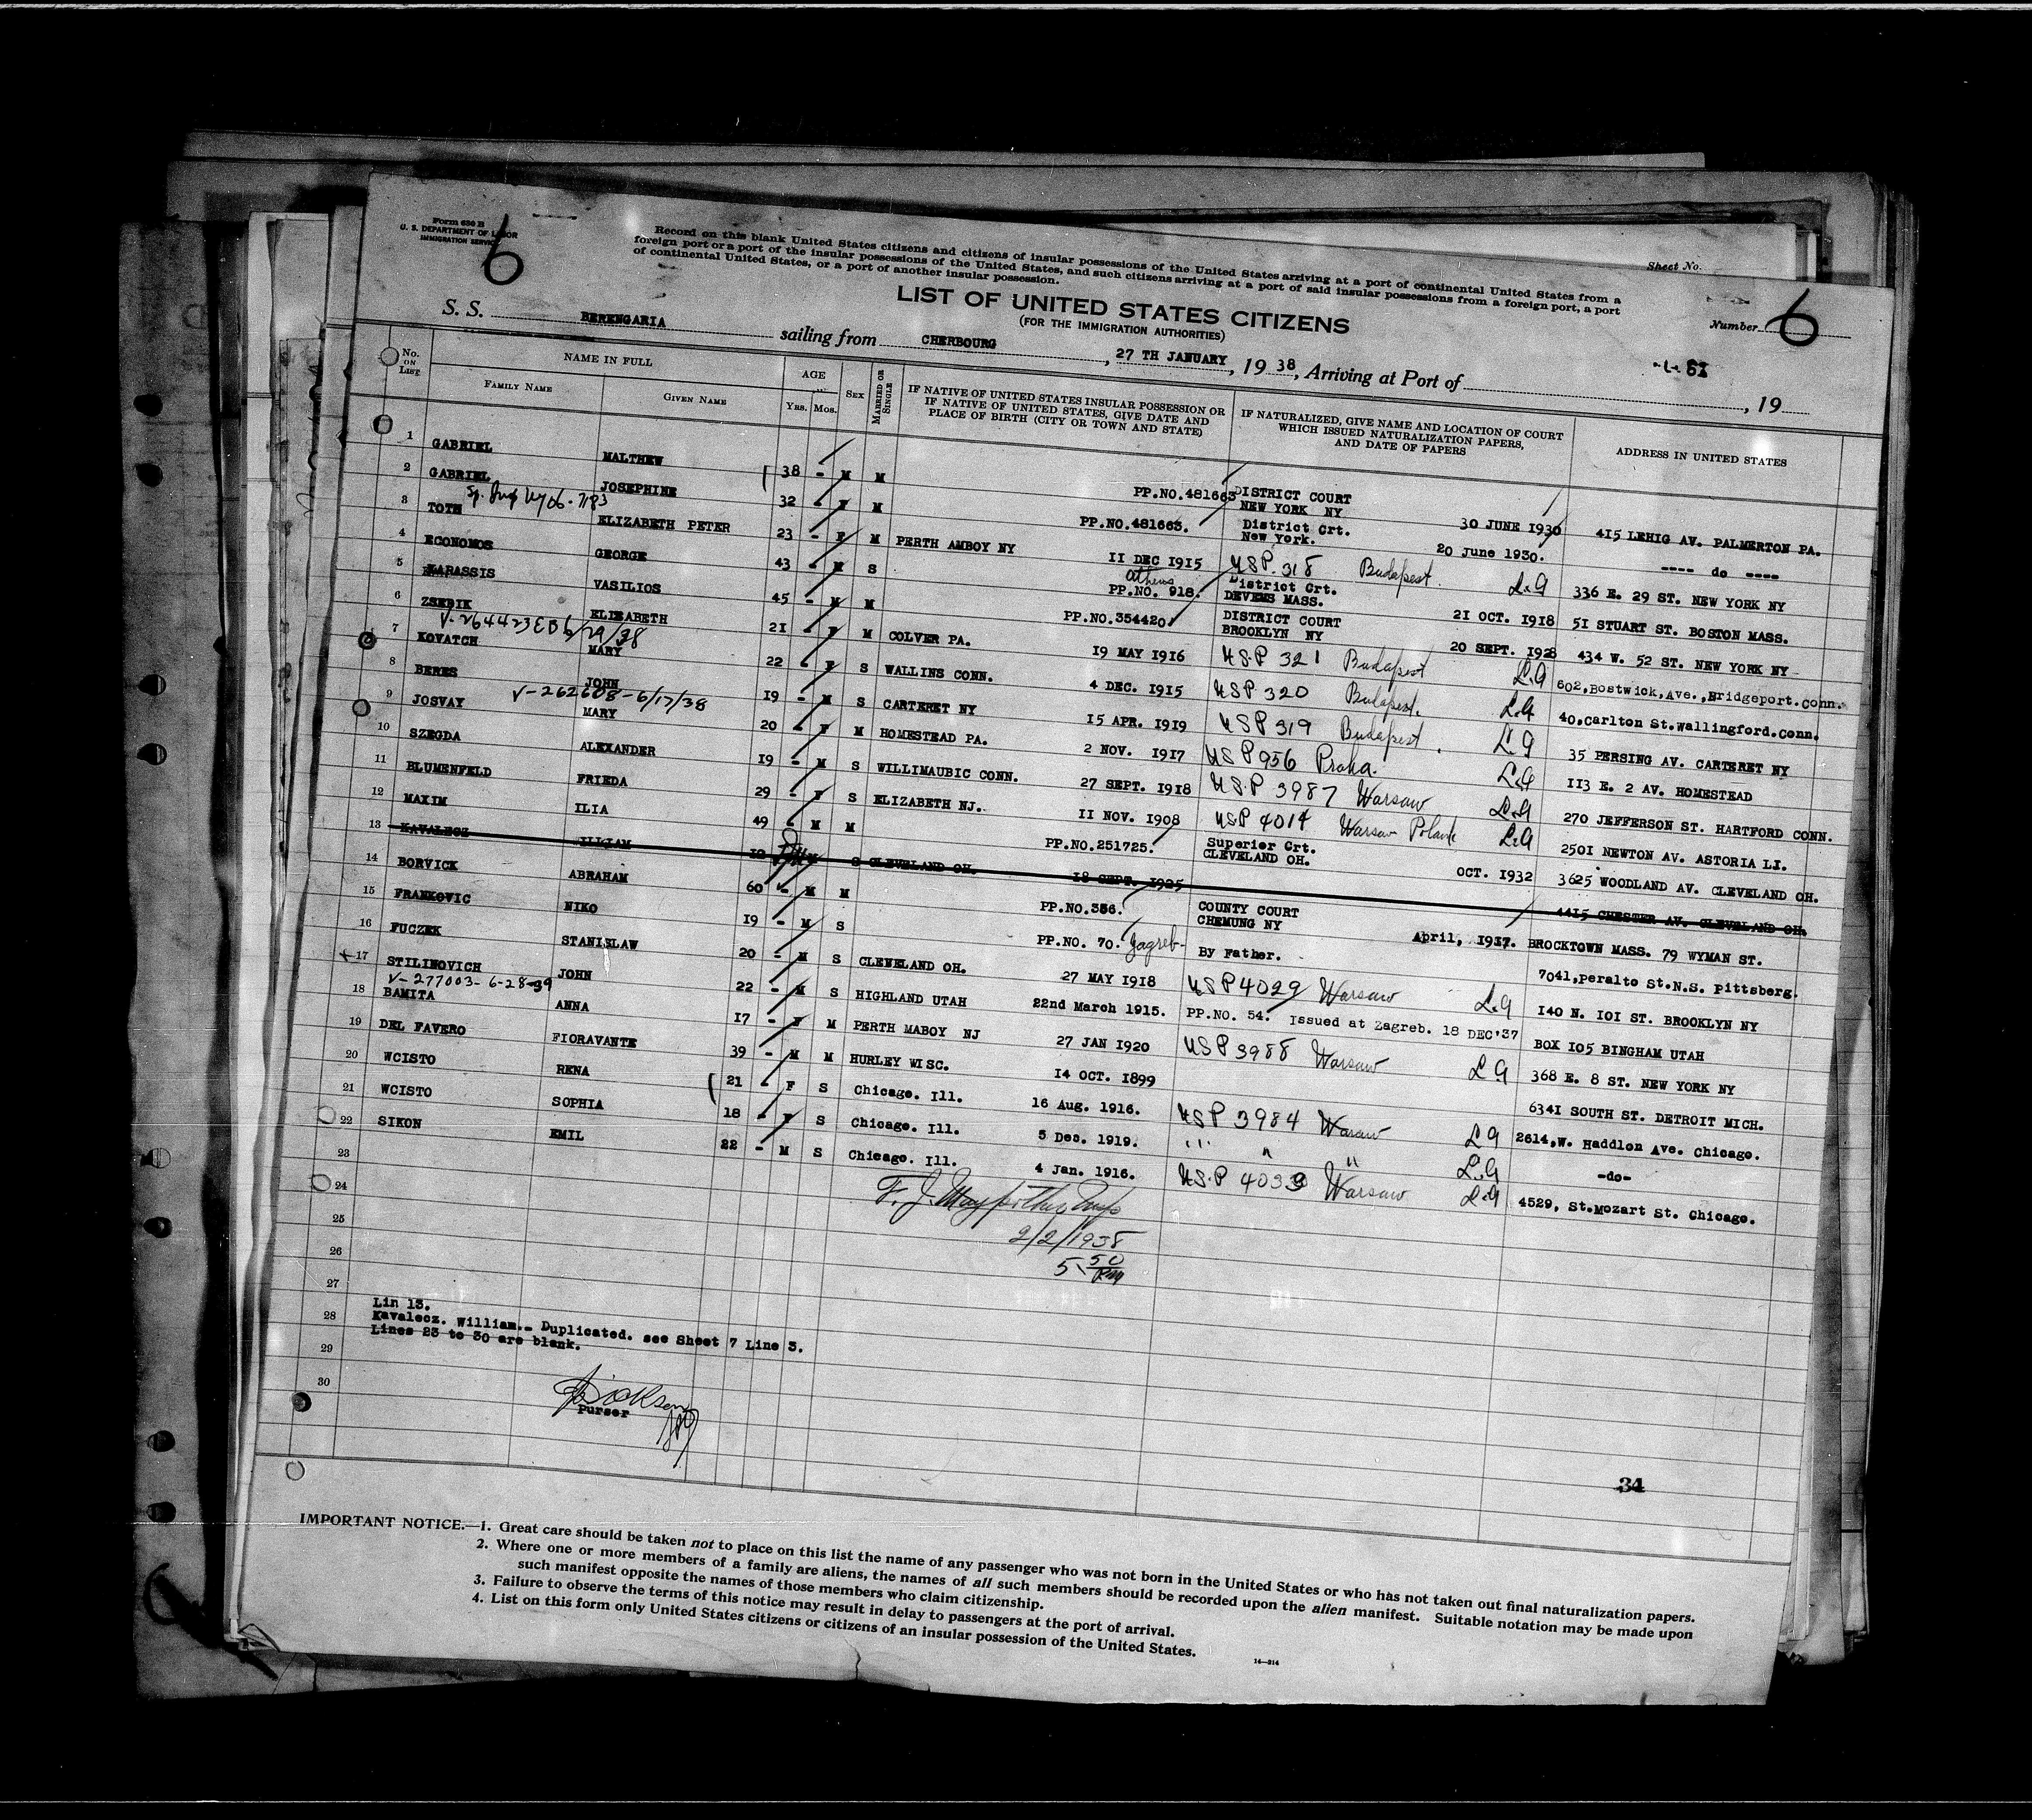 Form 630 B
U. S. DEPARTMENT OF LABOR
IMMIGRATION SERVICE
6
Record on this blank United States citizens and citizens of insular possessions of the United States arriving at a port of continental United States from a
foreign port or a port of the insular possessions of the United States, and such citizens arriving at a port of said insular possessions from a foreign port, a port
of continental United States, or a port of another insular possession.
Sheet No.
LIST OF UNITED STATES CITIZENS
(FOR THE IMMIGRATION AUTHORITIES)
Number 6
S. S. BERENGARIA sailing from CHERBOURG, 27 TH JANUARY, 19 38, Arriving at Port of , 19
No. ON LIST
NAME IN FULL
FAMILY NAME GIVEN NAME
AGE
YRS. MOS.
SEX
MARRIED OR SINGLE
IF NATIVE OF UNITED STATES INSULAR POSSESSION OR
IF NATIVE OF UNITED STATES, GIVE DATE AND
PLACE OF BIRTH (CITY OR TOWN AND STATE)
IF NATURALIZED, GIVE NAME AND LOCATION OF COURT
WHICH ISSUED NATURALIZATION PAPERS,
AND DATE OF PAPERS
ADDRESS IN UNITED STATES
1 GABRIEL MALTHEW 38 - M M PP.NO.481663 DISTRICT COURT NEW YORK NY 30 JUNE 1930 415 LEHIG AV. PALMERTON PA.
2 GABRIEL JOSEPHINE 32 - F M PP.NO.481663. District Crt. New York. 20 June 1930. ---- do ----
3 TOTH ELIZABETH PETER 23 - F M PERTH AMBOY NY 11 DEC 1915 USP. 318 Budapest. L.G 336 E. 29 ST. NEW YORK NY
4 ECONOMOS GEORGE 43 - M S Athens PP.NO. 918. District Crt. DEVENS MASS. 21 OCT. 1918 51 STUART ST. BOSTON MASS.
5 KARASSIS VASILIOS 45 - M M PP.NO.354420. DISTRICT COURT BROOKLYN NY 20 SEPT. 1928 434 W. 52 ST. NEW YORK NY
6 ZSEDIK ELIZABETH 21 - F M COLVER PA. 19 MAY 1916 USP 321 Budapest L.G 602, Bostwick, Ave., Bridgeport. Conn.
V-264423 EB 6/29/38
7 KOVATCH MARY 22 - F S WALLINS CONN. 4 DEC. 1915 USP 320 Budapest. L.G 40, Carlton St. Wallingford. Conn.
8 BERES JOHN 19 - M S CARTERET NY 15 APR. 1919 USP 319 Budapest. L.G 35 PERSING AV. CARTERET NY
V-262608-6/17/38
9 JOSVAY MARY 20 - F M HOMESTEAD PA. 2 NOV. 1917 USP 956 Praha. L.G 113 E. 2 AV. HOMESTEAD
10 SZEGDA ALEXANDER 19 - M S WILLIMAUBIC CONN. 27 SEPT. 1918 U.S.P 3987 Warsaw L.G 270 JEFFERSON ST. HARTFORD CONN.
11 BLUMENFELD FRIEDA 29 - F S ELIZABETH NJ. 11 NOV. 1908 USP 4014 Warsaw Poland L.G 2501 NEWTON AV. ASTORIA LI.
12 MAXIM ILIA 49 - M M PP.NO.251725. Superior Crt. CLEVELAND OH. OCT. 1932 3625 WOODLAND AV. CLEVELAND OH.
13 KAVALECZ S CLEVELAND OH. 18 SEPT. 1925 4415 CHESTER AV. CLEVELAND OH.
14 BORVICK ABRAHAM 60 - M M PP.NO.356. COUNTY COURT CHEMUNG NY April, 1917. BROCKTOWN MASS. 79 WYMAN ST.
15 FRANKOVIC NIKO 19 - M S PP.NO. 70. Zagreb- By Father. 7041, peralto St. N.S. Pittsberg.
16 FUCZEK STANISLAW 20 - M S CLEVELAND OH. 27 MAY 1918 USP 4029 Warsaw L.G 140 N. 101 ST. BROOKLYN NY
17 STILINOVICH JOHN 22 - M S HIGHLAND UTAH 22nd March 1915. PP.NO. 54. Issued at Zagreb. 18 DEC'37 BOX 105 BINGHAM UTAH
V-277003-6-28-39
18 BAMITA ANNA 17 - F M PERTH MABOY NJ 27 JAN 1920 USP 3988 Warsaw L.G 368 E. 8 ST. NEW YORK NY
19 DEL FAVERO FIORAVANTE 39 - M M HURLEY WISC. 14 OCT. 1899 6341 SOUTH ST. DETROIT MICH.
20 WCISTO RENA 21 - F S Chicago. Ill. 16 Aug. 1916. USP 3984 Warsaw L.G 2614, W. Haddlon Ave. Chicago.
21 WCISTO SOPHIA 18 - F S Chicago. Ill. 5 Dec. 1919. " " " L.G -do-
22 SIKON EMIL 22 - M S Chicago. Ill. 4 Jan. 1916. U.S.P 4033 Warsaw L.G 4529, St. Mozart St. Chicago.
23
24
25 2/2/1938
26 5 50 PM
27
28
29
30
Lin 13.
Kavalecz. William.- Duplicated. see Sheet 7 Line 3.
Lines 23 to 30 are blank.
Purser
34
IMPORTANT NOTICE.—1. Great care should be taken not to place on this list the name of any passenger who was not born in the United States or who has not taken out final naturalization papers.
2. Where one or more members of a family are aliens, the names of all such members should be recorded upon the alien manifest. Suitable notation may be made upon
such manifest opposite the names of those members who claim citizenship.
3. Failure to observe the terms of this notice may result in delay to passengers at the port of arrival.
4. List on this form only United States citizens or citizens of an insular possession of the United States.
14—314